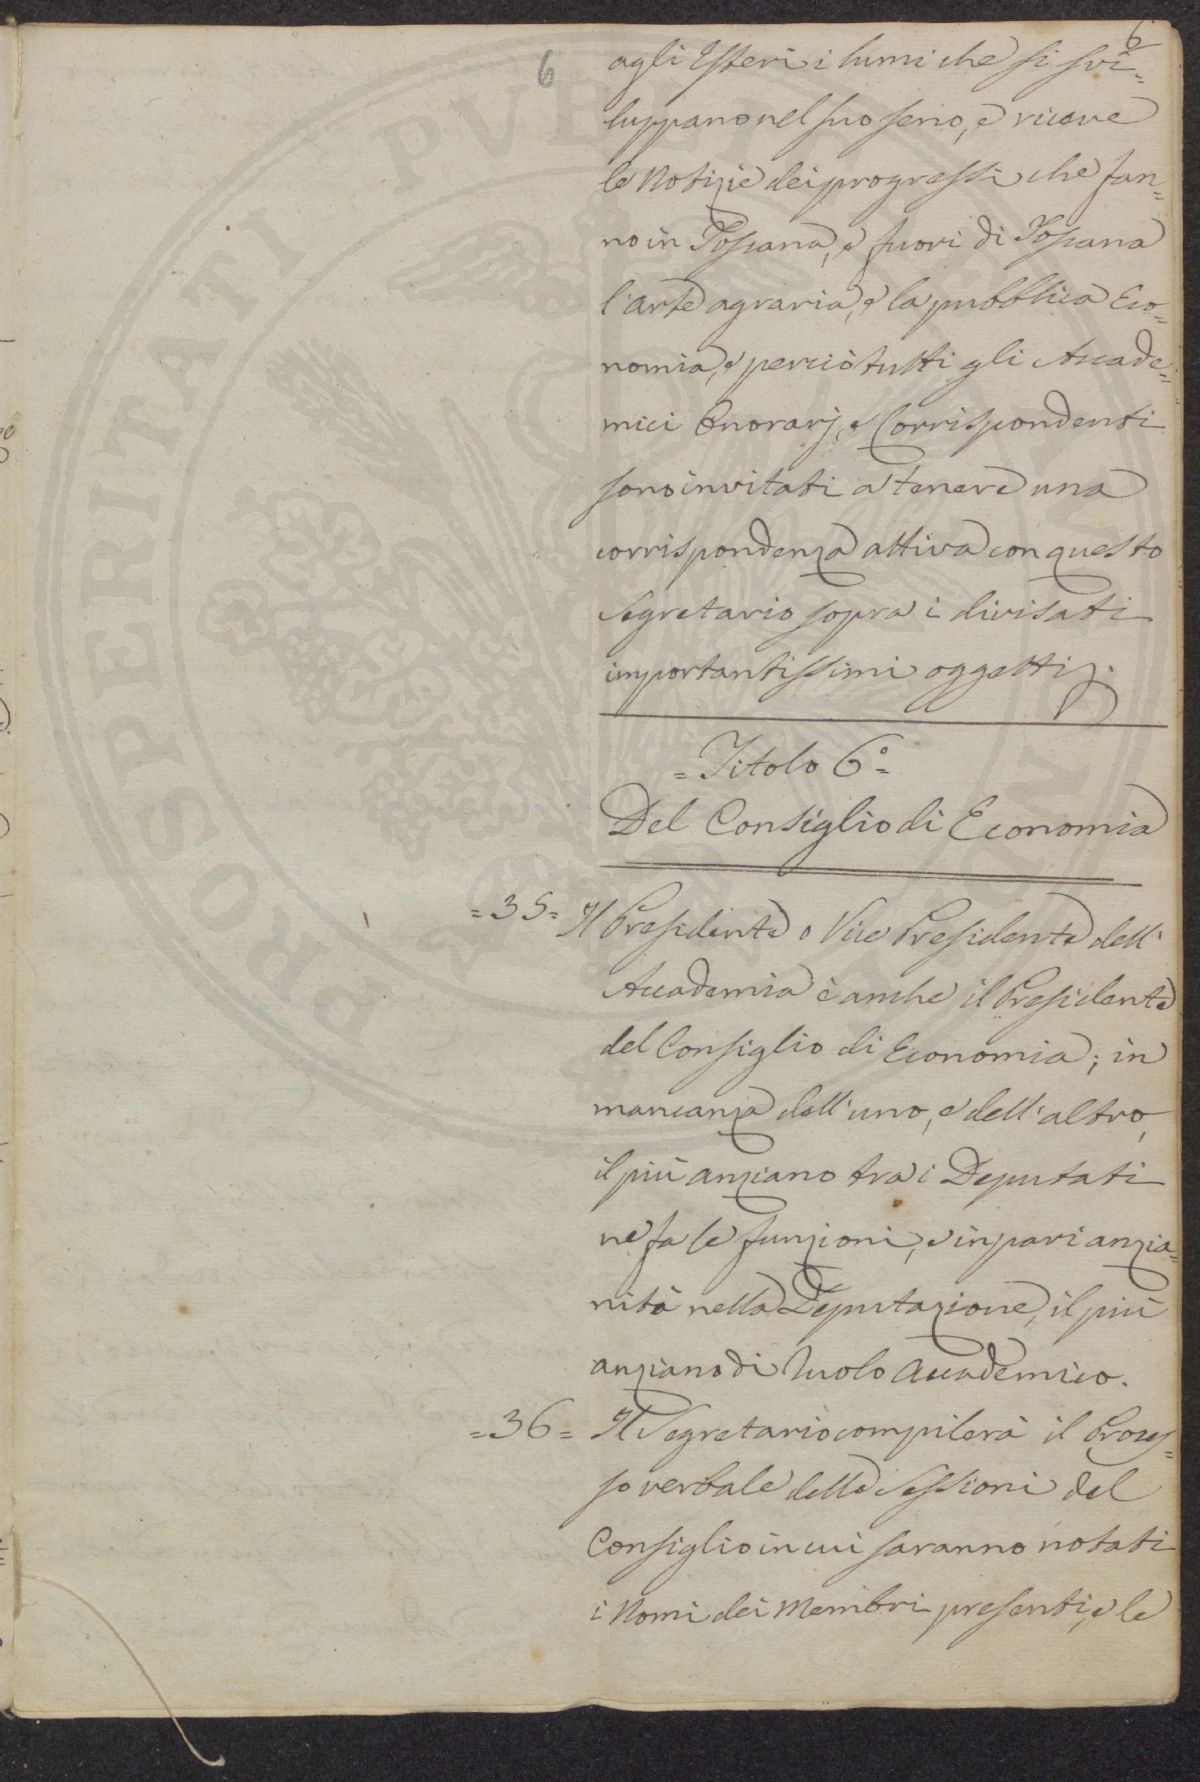 6
6
agli Esteri i lumi che si svi=
luppano nel suo seno, e riceve
le Notizie dei progressi che fan=
no in Toscana, e fuori di Toscana
l'arte agraria, e la pubblica Eco=
nomia, e perciò tutti gli Accade=
mici Onorarj, e Corrispondenti
sono invitati a tenere una
corrispondenza attiva con questo
Segretario sopra i divisati
importantissimi oggetti.
= Titolo 6° =
Del Consiglio di Economia
= 35 = Il Presidente o Vice Presidente dell'
Accademia è anche il Presidente
del Consiglio di Economia; in
mancanza dell'uno, e dell'altro,
il più anziano tra i Deputati
ne fa le funzioni, e in pari anzia=
nità nella Deputazione, il più
anziano di Ruolo Accademico.
= 36 = Il Segretario compilerà il Proces=
so verbale delle Sessioni del
Consiglio in cui saranno notati
i Nomi dei Membri presenti, e le
POSPERITATI PUBLICAE